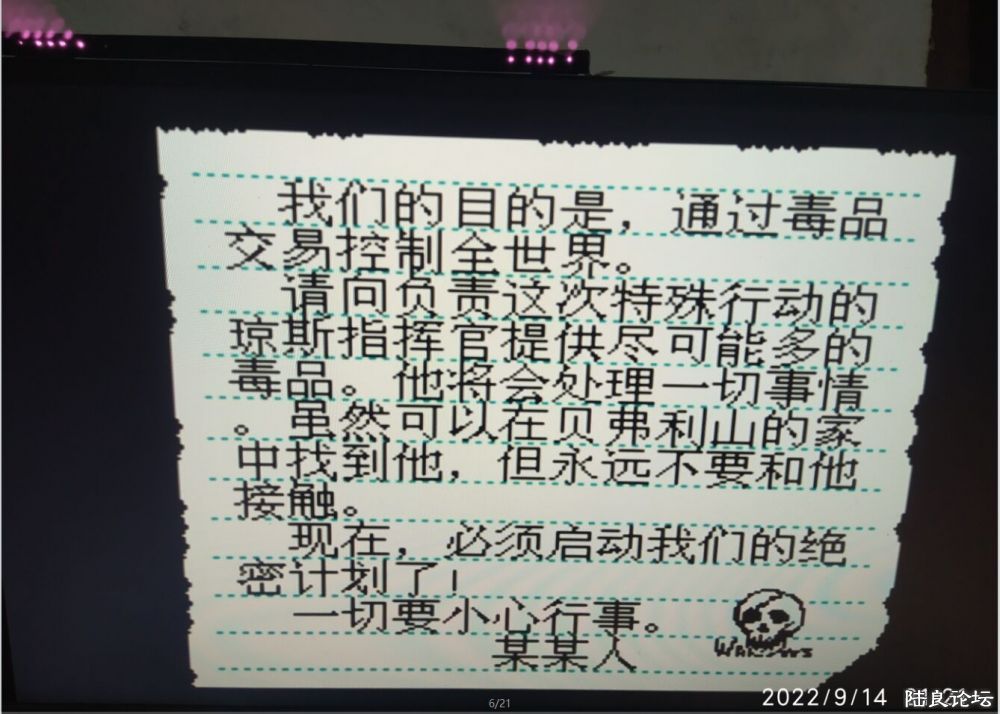 我们的目的是，通过毒品
交易控制全世界。
请向负责这次特殊行动的
琼斯指挥官提供尽可能多的
毒品。他将会处理一切事情
。虽然可以在贝弗利山的家
中找到他，但永远不要和他
接触。
现在，必须启动我们的绝
密计划了！
一切要小心行事。
某某人
6/21
2022/9/14
陆良论坛